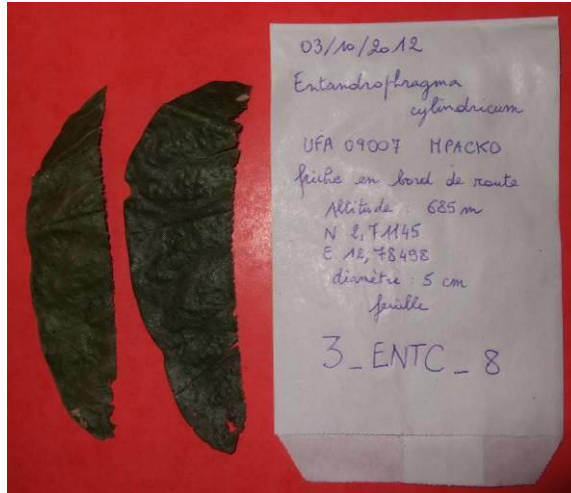 03/10/2012
Entandrophragma
cylindricum
UFA 09007 MPACKO
friche en bord de route
Altitude : 685 m
N 2,71145
E 12,78498
diamètre : 5 cm
feuille
3_ENTC_8